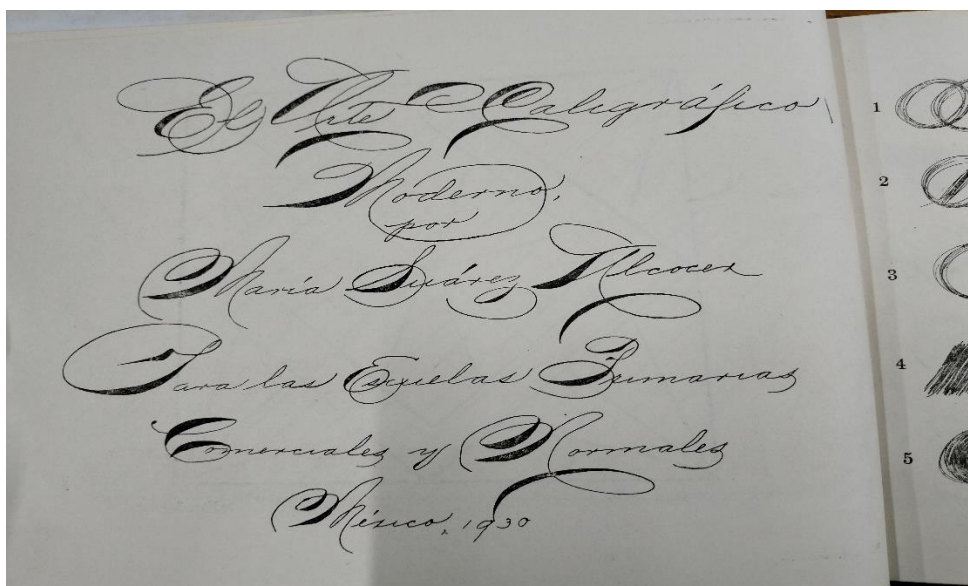 El Arte Caligráfico
Moderno,
por
María Suárez Alcocer
Para las Escuelas Primarias
Comerciales y Normales
México, 1930
1
2
3
4
5